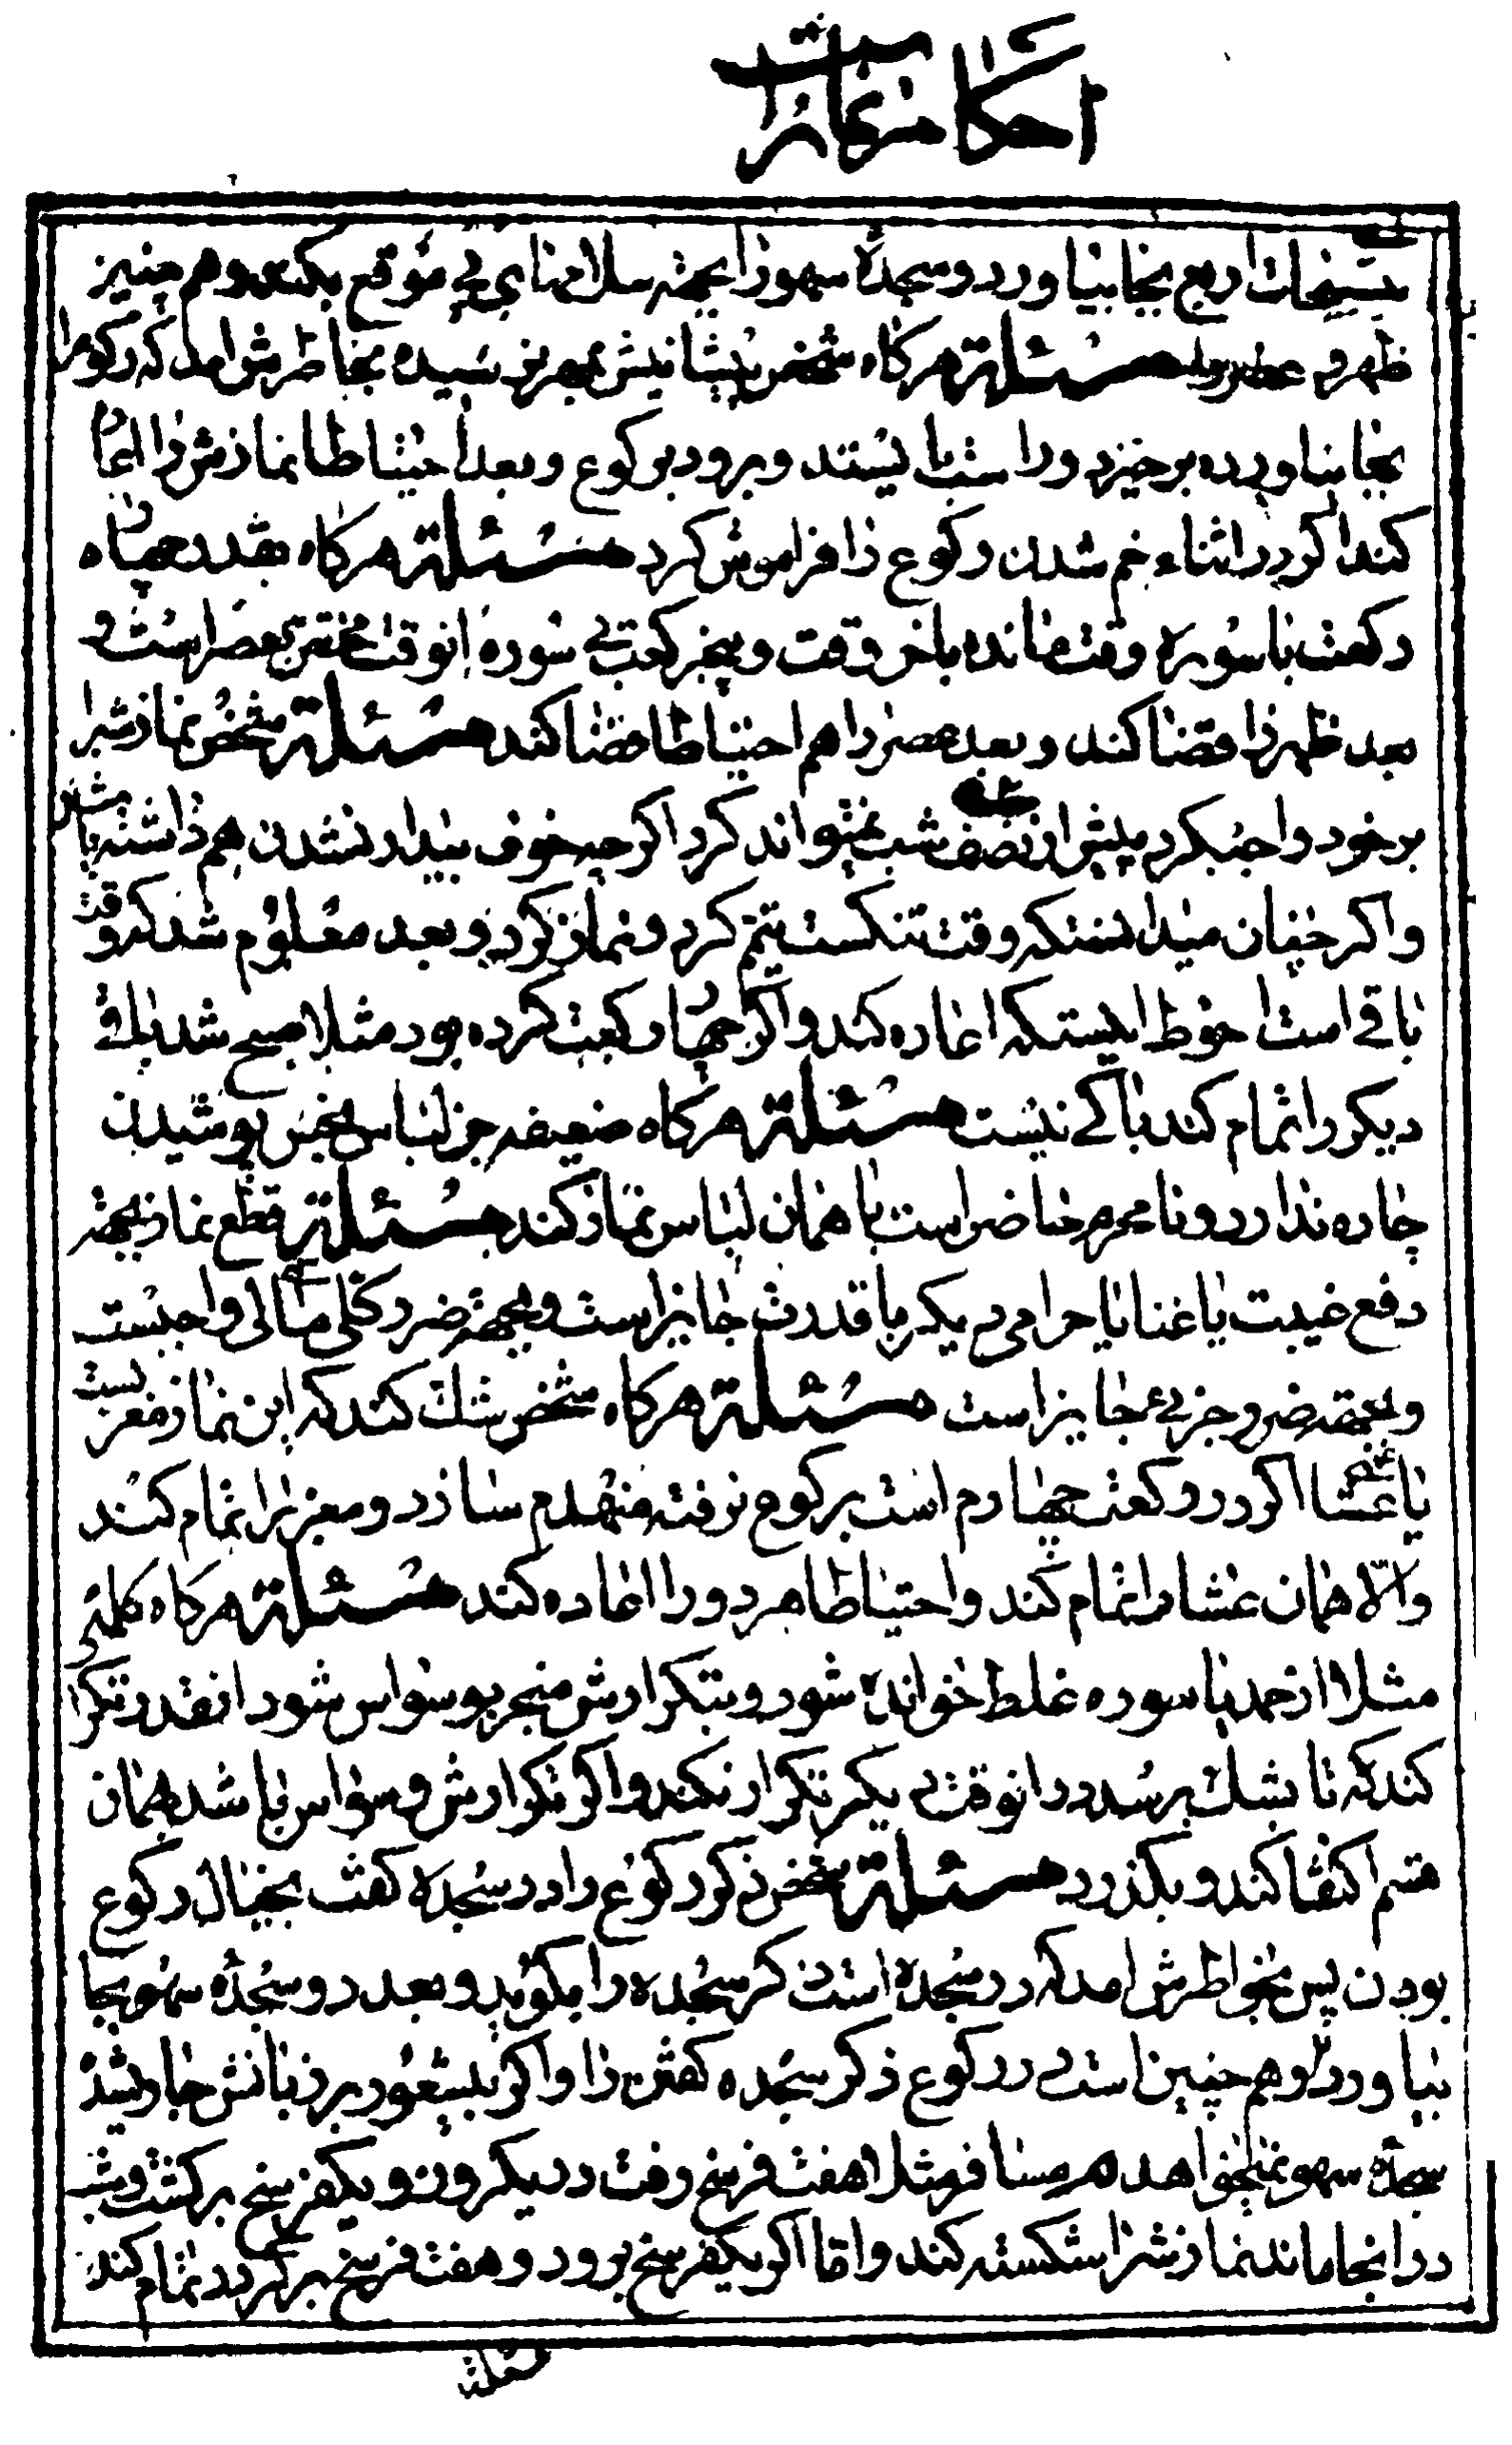 احکام نماز است
تسبیحات اربع بجا بیاورد و سجدهٔ سهو را بجهة سلامهای بی موقع بکند و هم چنین
ظهر و مسئلة هرگاه شخص پیشانیش بمهر نرسیده بخاطرش امد که رکوع را
بجا نیاورده برخیزد و راست بایستد و برود برکوع و بعد احتیاطا نمازش را اعاده
کند اگر در اثناء خم شدن رکوع را فراموش کرد مسئلة هرگاه بقدر چهار
رکعت با سوره وقت مانده باخر وقت و پنجرکعت بی سوره انوقت مختص بعصر است و
بعد ظهر را قضا کند و بعد عصر را هم احتیاطا قضا کند مسئلة شخص نماز شبرا
بر خود واجبکرد پیش از نصف شب نمیتواند کرد اگر چه خوف بیدار نشدن هم داشته باشد
و اگر چنان میدانستکه وقت تنکست تیمم کرد و نماز کرد و بعد معلوم شد که وقت
باقی است احوط اینستکه اعاده کند و اگر چهار رکعت کرده بود مثلا صبح شد باقی
دیکر را تمام کند باکی نیست مسئلة هرکاه ضعیفه جز لباس نجس پوشیدن
چاره ندارد و نامحرم حاضر است با همان لباس نماز کند مسئلة قطع نماز بجهة
دفع غیبت یا غنا یا حرامی دیکر با قدرت جایز است و بجهة ضرر کلی مالی واجبست
و بجهة ضرر جزئی جایز است مسئلة هرکاه شخص شک کند که این نماز مغربست
یا عشا اکر در رکعت چهارم است برکوع نرفته منهدم سازد و مغرب را تمام کند
والا همان عشا را تمام کند و احتیاطا هر دو را اعاده کند مسئلة هرکاه کلمهٔ
مثلا از حمد یا سوره غلط خوانده شود و بتکرارش منجر بوسواس شود انقدر تکرار
کند که تا بشک برسد در انوقت دیکر تکرار نکند و اکر تکرارش وسواس باشد بهمان
قسم اکتفا کند و بکذرد مسئلة شخص ذکر رکوع را در سجده کفت بخیال رکوع
بودن پس بخواطرش امد که در سجده است ذکر سجده را بکوید و بعد دو سجدهٔ سهو بجا
بیاورد و هم چنین است در رکوع ذکر سجده کفتن را و اکر بیشعور بر زبانش جاری شد
سجدهٔ سهو نمیخواهد هر مسافر مثلا هفت فرسخ رفت در یکروز و یکفرسخ برکشت و شب
در انجا ماند نماز شرا شکسته کند و اما اکر یکفرسخ برود و هفت فرسخ برکردد تمام کند
مسئلة